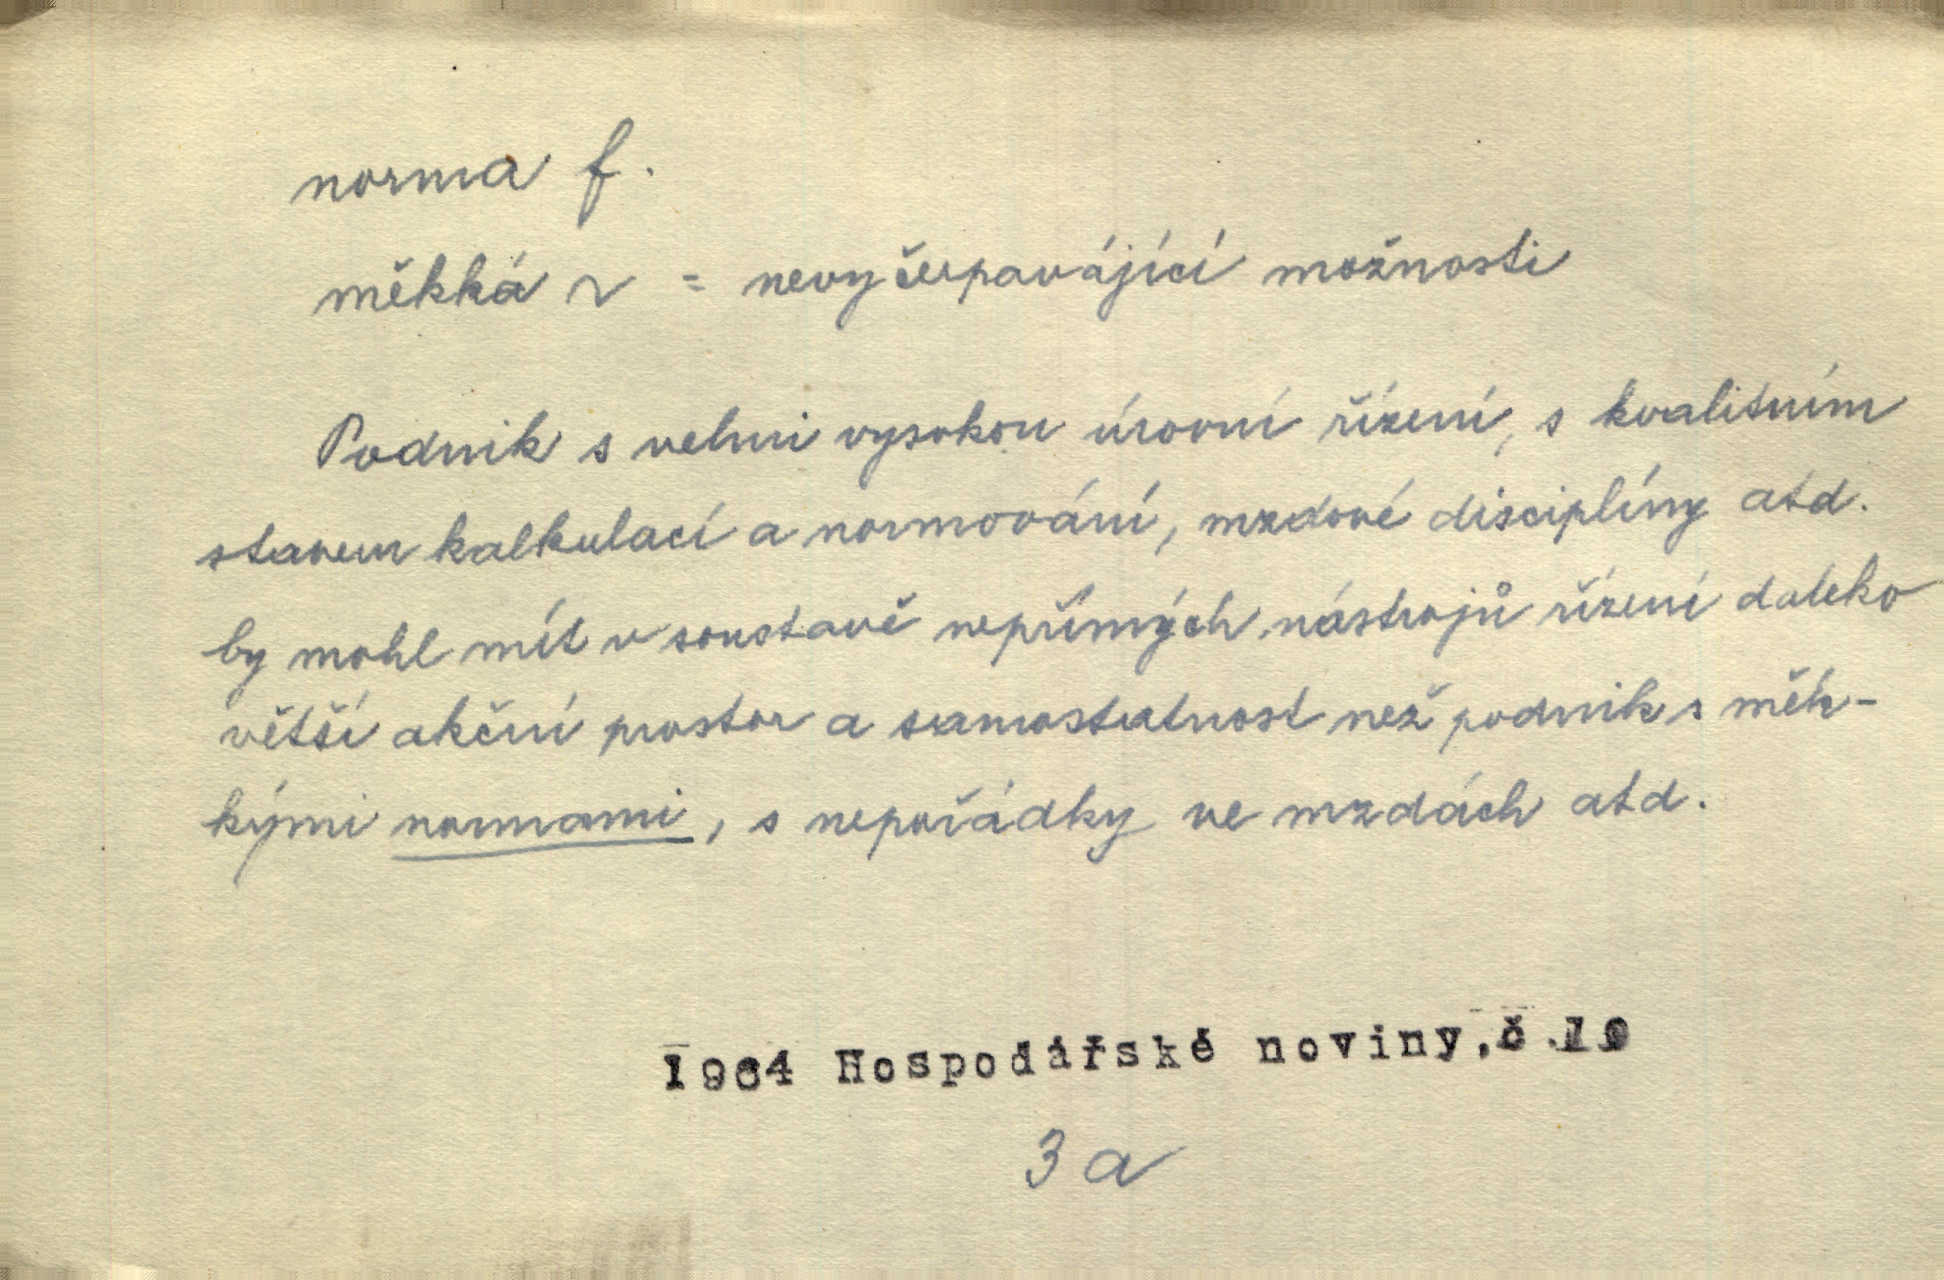 norma f.
měkká ~ = nevyčerpavájící možnosti
Podnik s velmi vysokou úrovní řízení, s kvalitním
stavem kalkulací a normování, mzdové disciplíny atd.
by mohl mít v soustavě nepřímých nástrojů řízení daleko
větší akční prostor a samostatnost než podnik s měk-
kými normami, s nepořádky ve mzdách atd.
1964 Hospodářské noviny, č.10
3 a